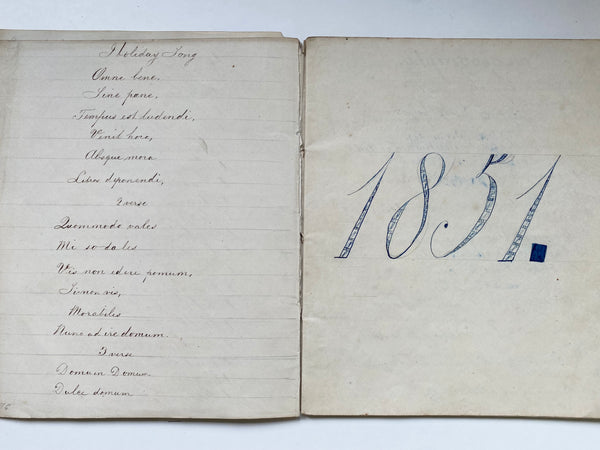 Holiday Song
Omni bene,
Sine pane,
Tempus est ludendi,
Venit hora,
Absque mora
Libros diponendi,
2 verse
Quommodo vales
Mi so dales
Vis non edere pomum,
Si non vis,
Morabiles
Nunc ad ire domum.
3 verse
Domum Domum
Dulce domum
1851.